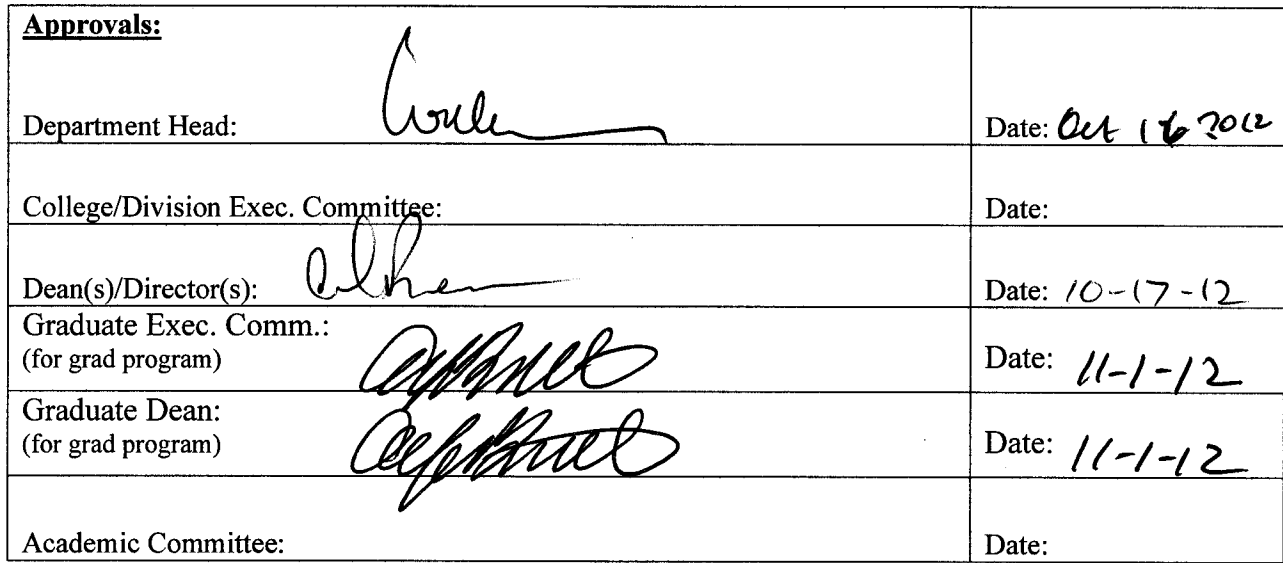 Approvals:
Department Head: Date: Oct 16 2012
College/Division Exec. Committee: Date:
Dean(s)/Director(s): Date: 10-17-12
Graduate Exec. Comm.:
(for grad program) Date: 11-1-12
Graduate Dean:
(for grad program) Date: 11-1-12
Academic Committee: Date: